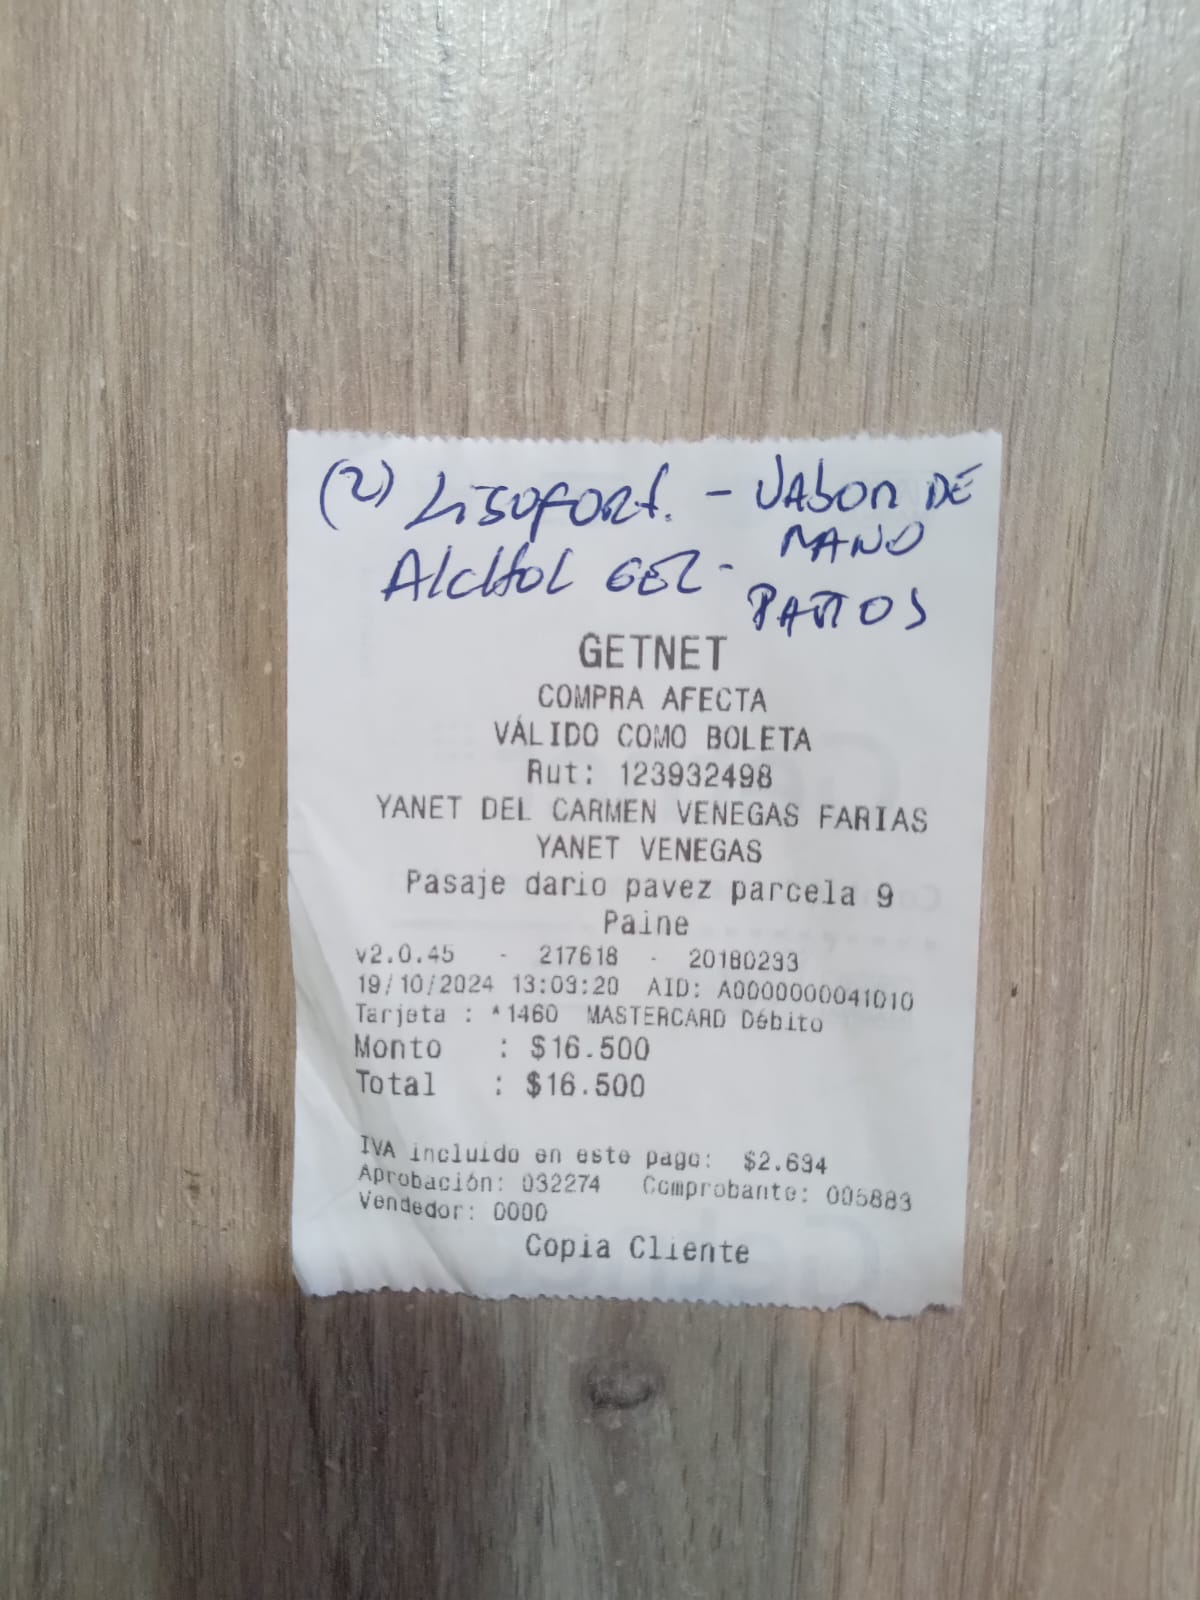 (2) Lisofort. - Jabon DE
MANO
Alchol GEL -
PAÑOS
GETNET
COMPRA AFECTA
VÁLIDO COMO BOLETA
Rut: 123932498
YANET DEL CARMEN VENEGAS FARIAS
YANET VENEGAS
Pasaje dario pavez parcela 9
Paine
v2.0.45 - 217618 - 20180233
19/10/2024 13:09:20 AID: A0000000041010
Tarjeta : *1460 MASTERCARD Débito
Monto : $16.500
Total : $16.500
IVA incluido en este pago: $2.634
Aprobación: 032274 Comprobante: 005883
Vendedor: 0000
Copia Cliente